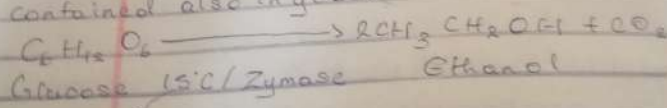 contained also in y
C₆H₁₂O₆ ⟶ 2CH₃CH₂OH + CO₂
Glucose 15°C/Zymase Ethanol